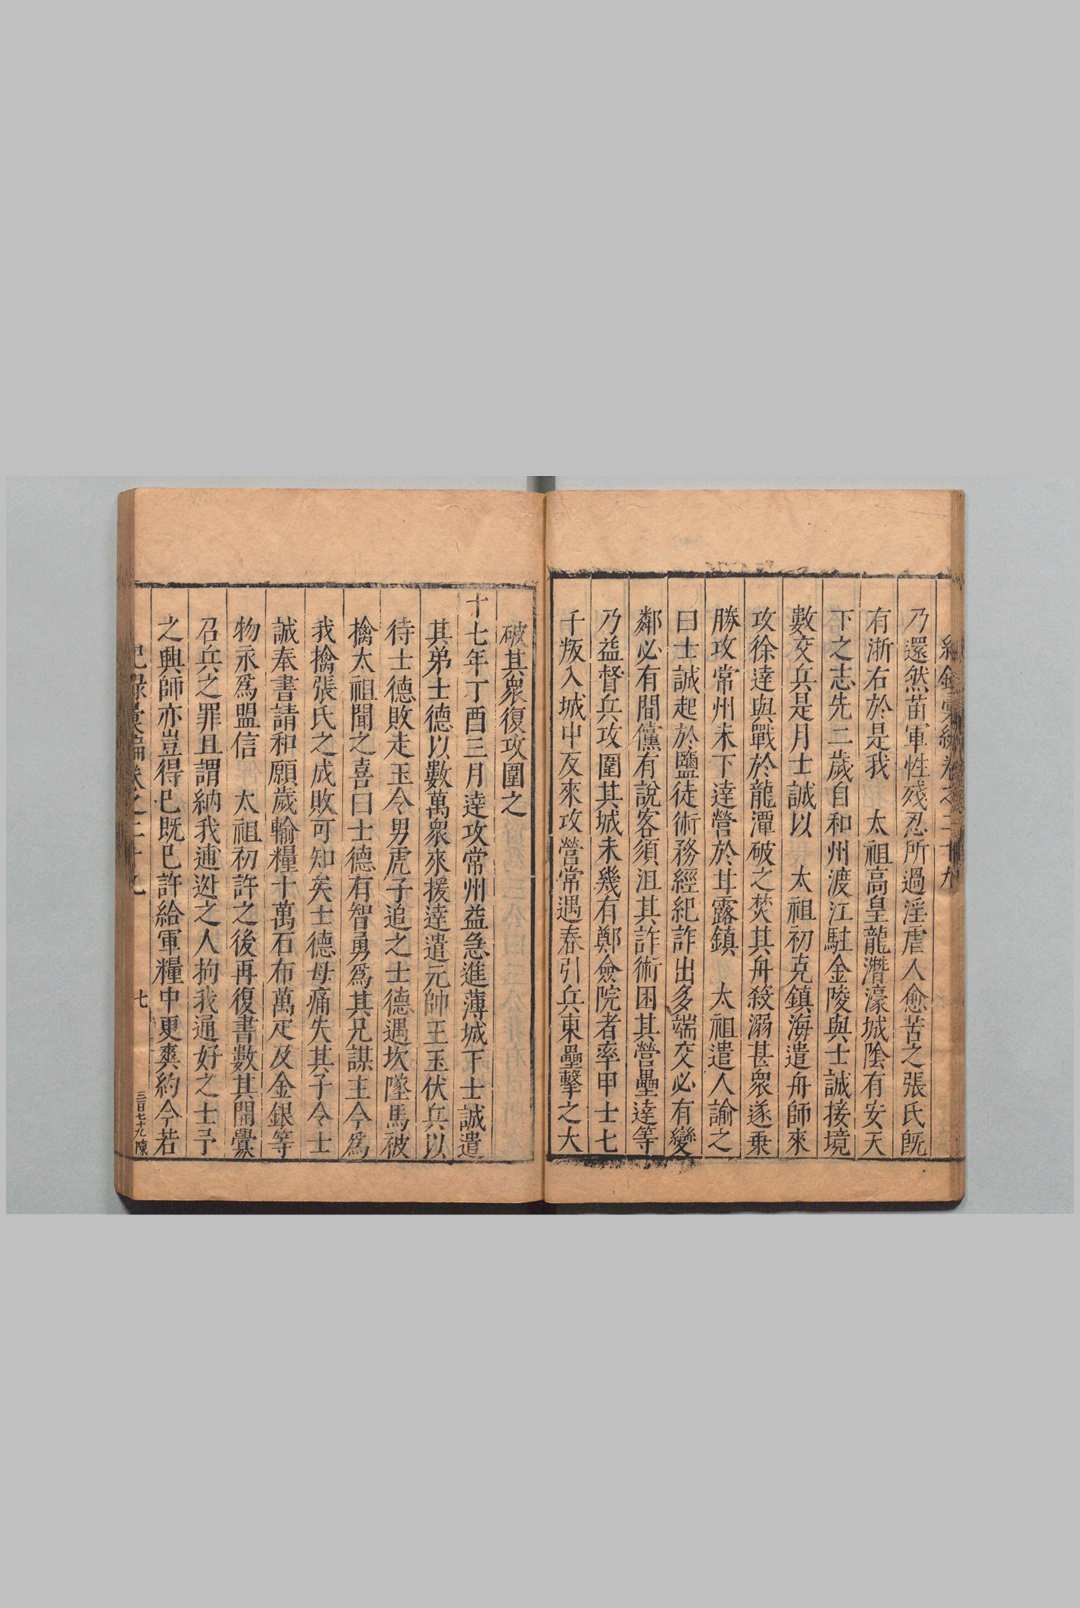 紀錄彙編卷之二十九
乃還然苗軍性殘忍所過淫虐人愈苦之張氏旣
有浙右於是我　太祖高皇龍濳濠城隂有安天
下之志先二歲自和州渡江駐金陵與士誠接境
數交兵是月士誠以　太祖初克鎮海遣舟師來
攻徐達與戰於龍潭破之焚其舟殺溺甚衆遂乗
勝攻常州未下達營於甘露鎮　太祖遣人諭之
曰士誠起於鹽徒術務經紀詐出多端交必有變
鄰必有間儻有說客須沮其詐術困其營壘達等
乃益督兵攻圍其城未幾有鄭僉院者率甲士七
千叛入城中反來攻營常遇春引兵東壘擊之大
破其衆復攻圍之
十七年丁酉三月達攻常州益急進薄城下士誠遣
其弟士德以數萬衆來援達遣元帥王玉伏兵以
待士德敗走玉令男虎子追之士德遇坎墜馬被
擒太祖聞之喜曰士德有智勇爲其兄謀主今爲
我擒張氏之成敗可知矣士德母痛失其子令士
誠奉書請和願歲輸糧十萬石布萬疋及金銀等
物永爲盟信　太祖初許之後再復書數其開釁
召兵之罪且謂納我逋逃之人拘我通好之士予
之興師亦豈得已既已許給軍糧中更爽約今若
紀錄彙編卷之二十九　七　三百七十九陳